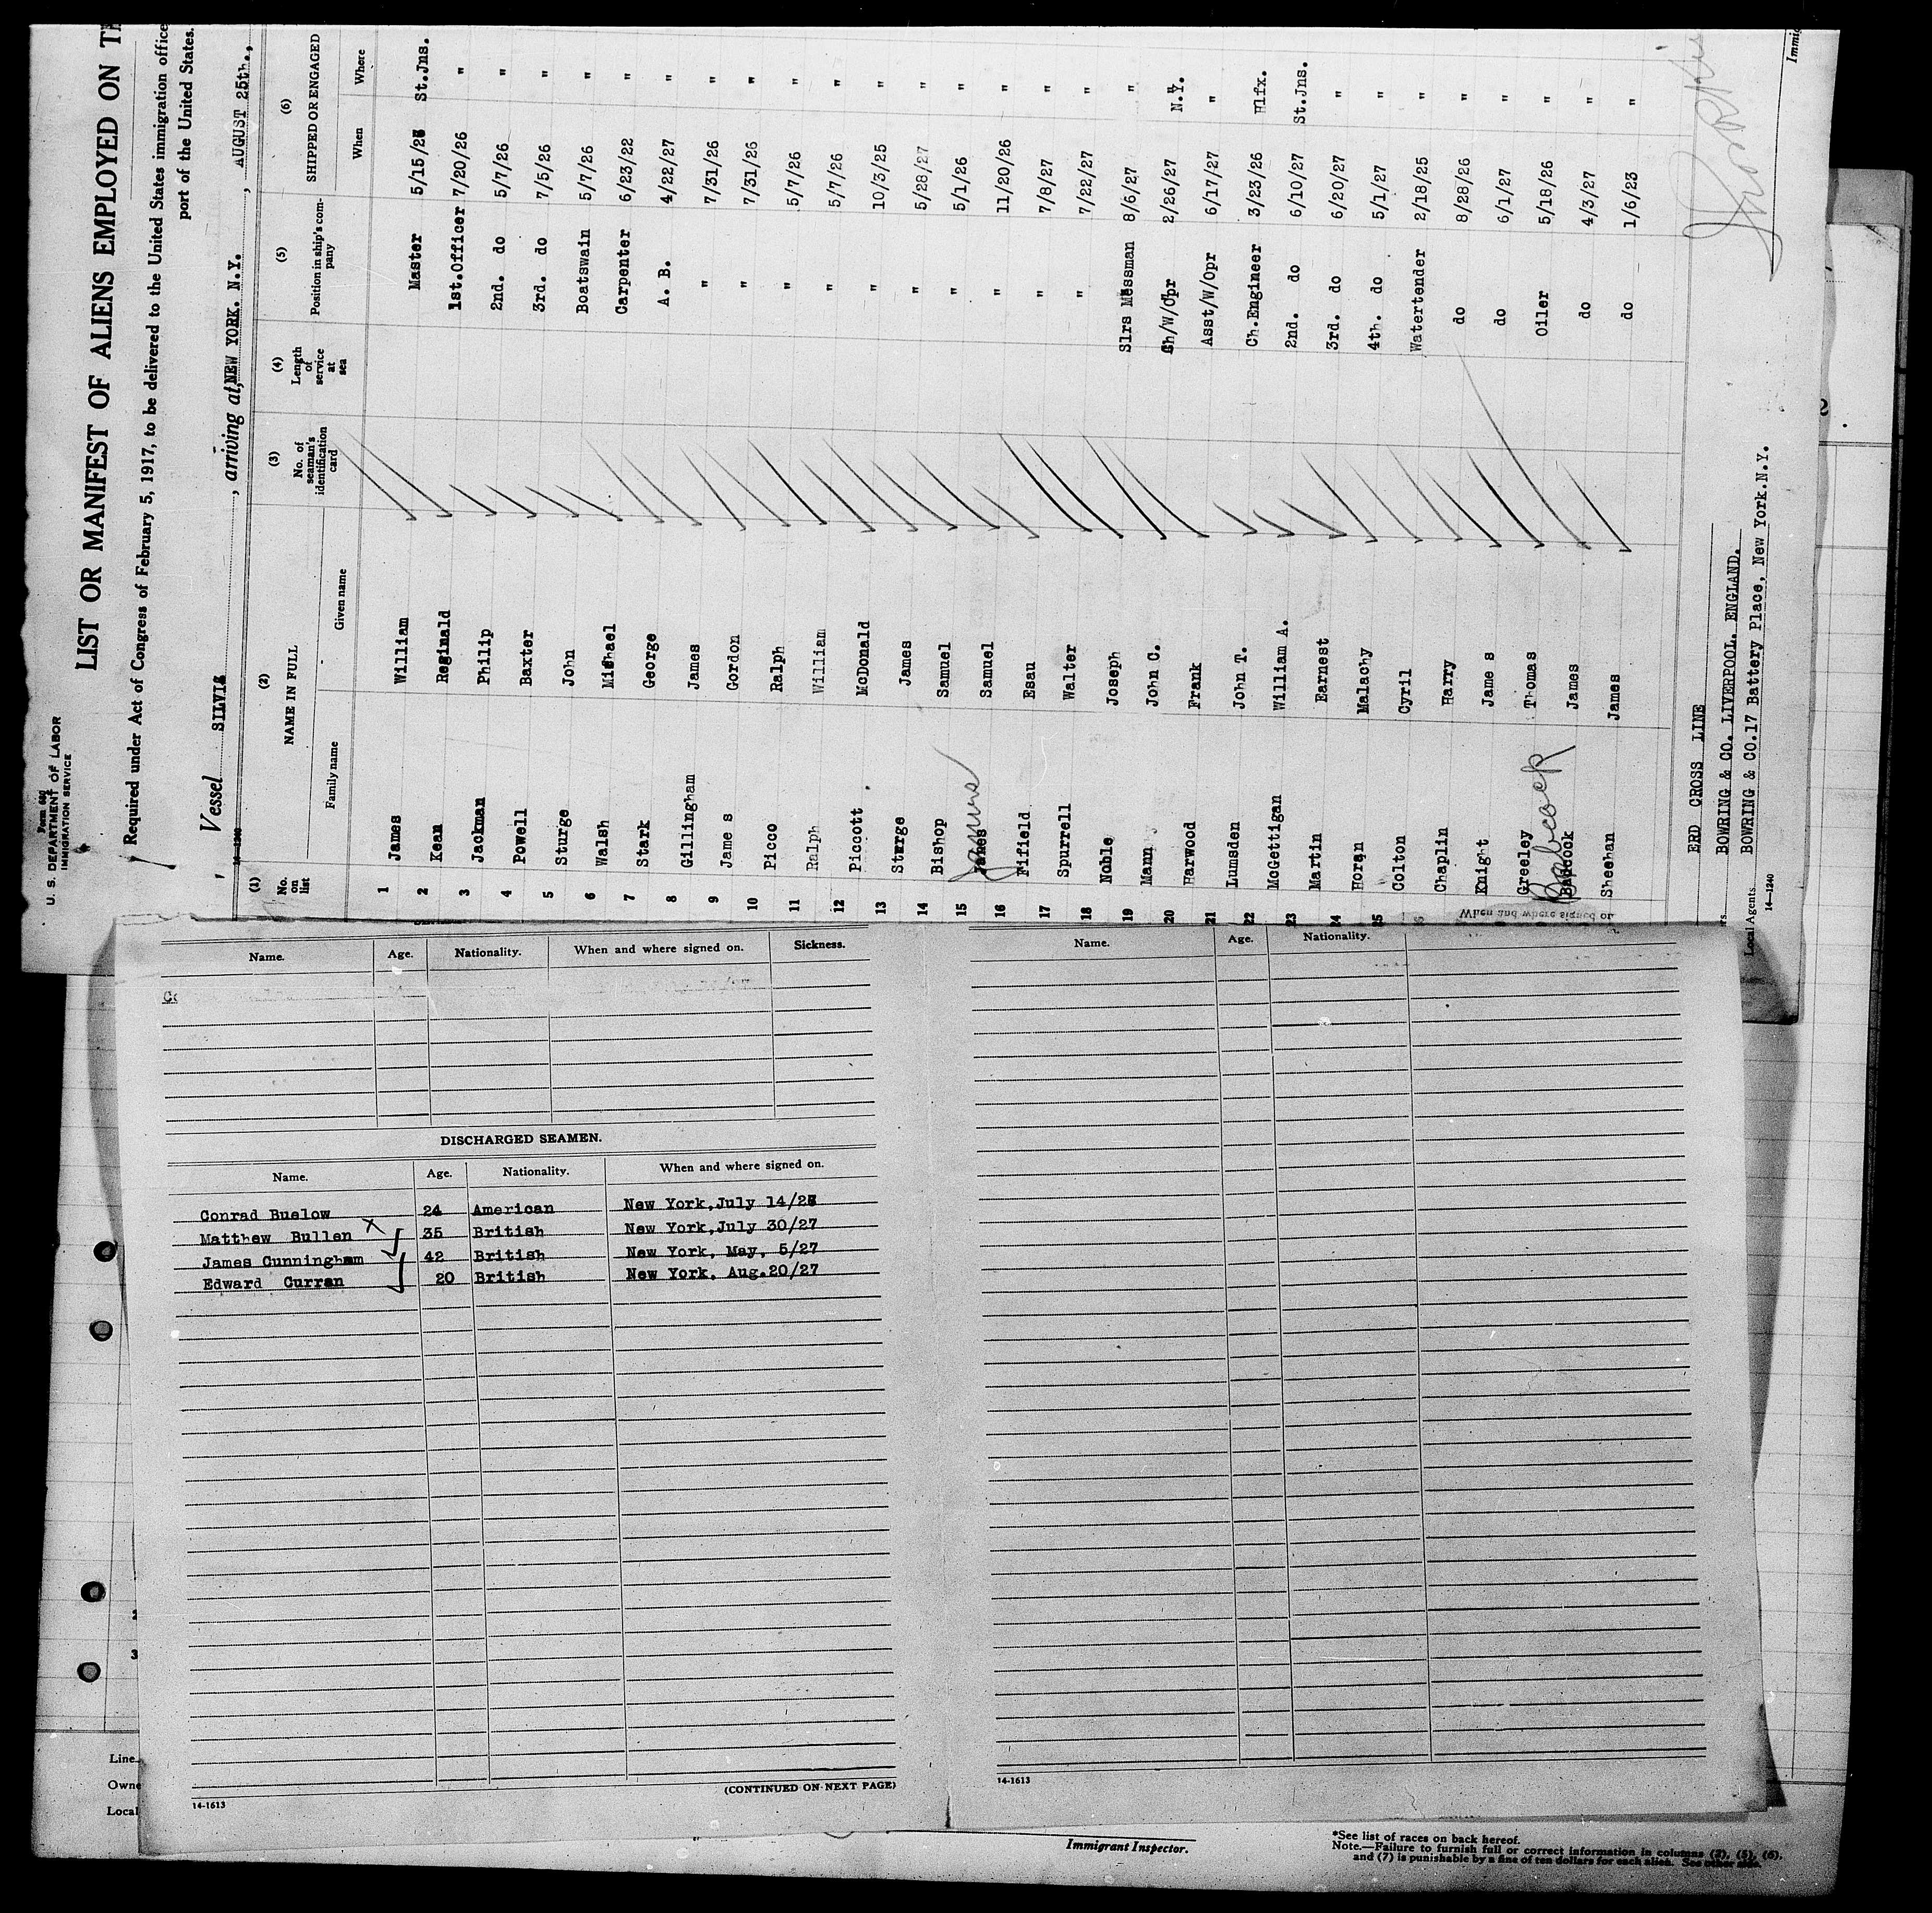 Form 680
U. S. DEPARTMENT OF LABOR
IMMIGRATION SERVICE
LIST OR MANIFEST OF ALIENS EMPLOYED ON
Required under Act of Congress of February 5, 1917, to be delivered to the United States immigration office
port of the United States.
Vessel SILVIA, arriving at, NEW YORK. N.Y., AUGUST 25th.,
14-1240
(1) (2) (3) (4) (5) (6)
No. on list NAME IN FULL No. of seaman's identification card Length of service at sea Position in ship's company SHIPPED OR ENGAGED
Family name Given name When Where
1 James William Master 5/15/26 St.Jns.
2 Kean Reginald 1st.Officer 7/20/26 "
3 Jackman Philip 2nd. do 5/7/26 "
4 Powell Baxter 3rd. do 7/5/26 "
5 Sturge John Boatswain 5/7/26 "
6 Walsh Michael Carpenter 6/23/22 "
7 Stark George A. B. 4/22/27 "
8 Gillingham James " 7/31/26 "
9 James Gordon " 7/31/26 "
10 Picco Ralph " 5/7/26 "
11 Ralph William " 5/7/26 "
12 Piccott McDonald " 10/3/25 "
13 Sturge James " 5/28/27 "
14 Bishop Samuel " 5/1/26 "
15 Janes Samuel " 11/20/26 "
16 Fifield Esau " 7/8/27 "
17 Spurrell Walter " 7/22/27 "
18 Noble Joseph Slrs Messman 8/6/27 "
19 Mann John C. Ch/W/Opr 2/26/27 N.Y.
20 Harwood Frank Asst/W/Opr 6/17/27 "
21 Lumsden John T. Ch.Engineer 3/23/26 Hlfx.
22 McGettigan William A. 2nd. do 6/10/27 St.Jns.
23 Martin Earnest 3rd. do 6/20/27 "
24 Horan Malachy 4th. do 5/1/27 "
25 Colton Cyril Watertender 2/18/25 "
Chaplin Harry do 8/28/26 "
Knight James do 6/1/27 "
Greeley Thomas Oiler 5/18/26 "
Babcock James do 4/3/27 "
Sheehan James do 1/6/23 "
When and where signed on
ERD CROSS LINE
BOWRING & CO. LIVERPOOL. ENGLAND.
Local Agents BOWRING & CO.17 Battery Place, New York.N.Y.
14-1240
Name. Age. Nationality. When and where signed on. Sickness.
DISCHARGED SEAMEN.
Name. Age. Nationality. When and where signed on.
Conrad Buelow 24 American New York,July 14/27
Matthew Bullen X 35 British New York,July 30/27
James Cunningham 42 British New York, May, 5/27
Edward Curran 20 British New York, Aug.20/27
(CONTINUED ON NEXT PAGE)
14-1613
Name. Age. Nationality.
14-1613
Line
Owne
Local
Immigrant Inspector.
*See list of races on back hereof.
Note.—Failure to furnish full or correct information in columns (2), (5), (6),
and (7) is punishable by a fine of ten dollars for each alien. See other side.